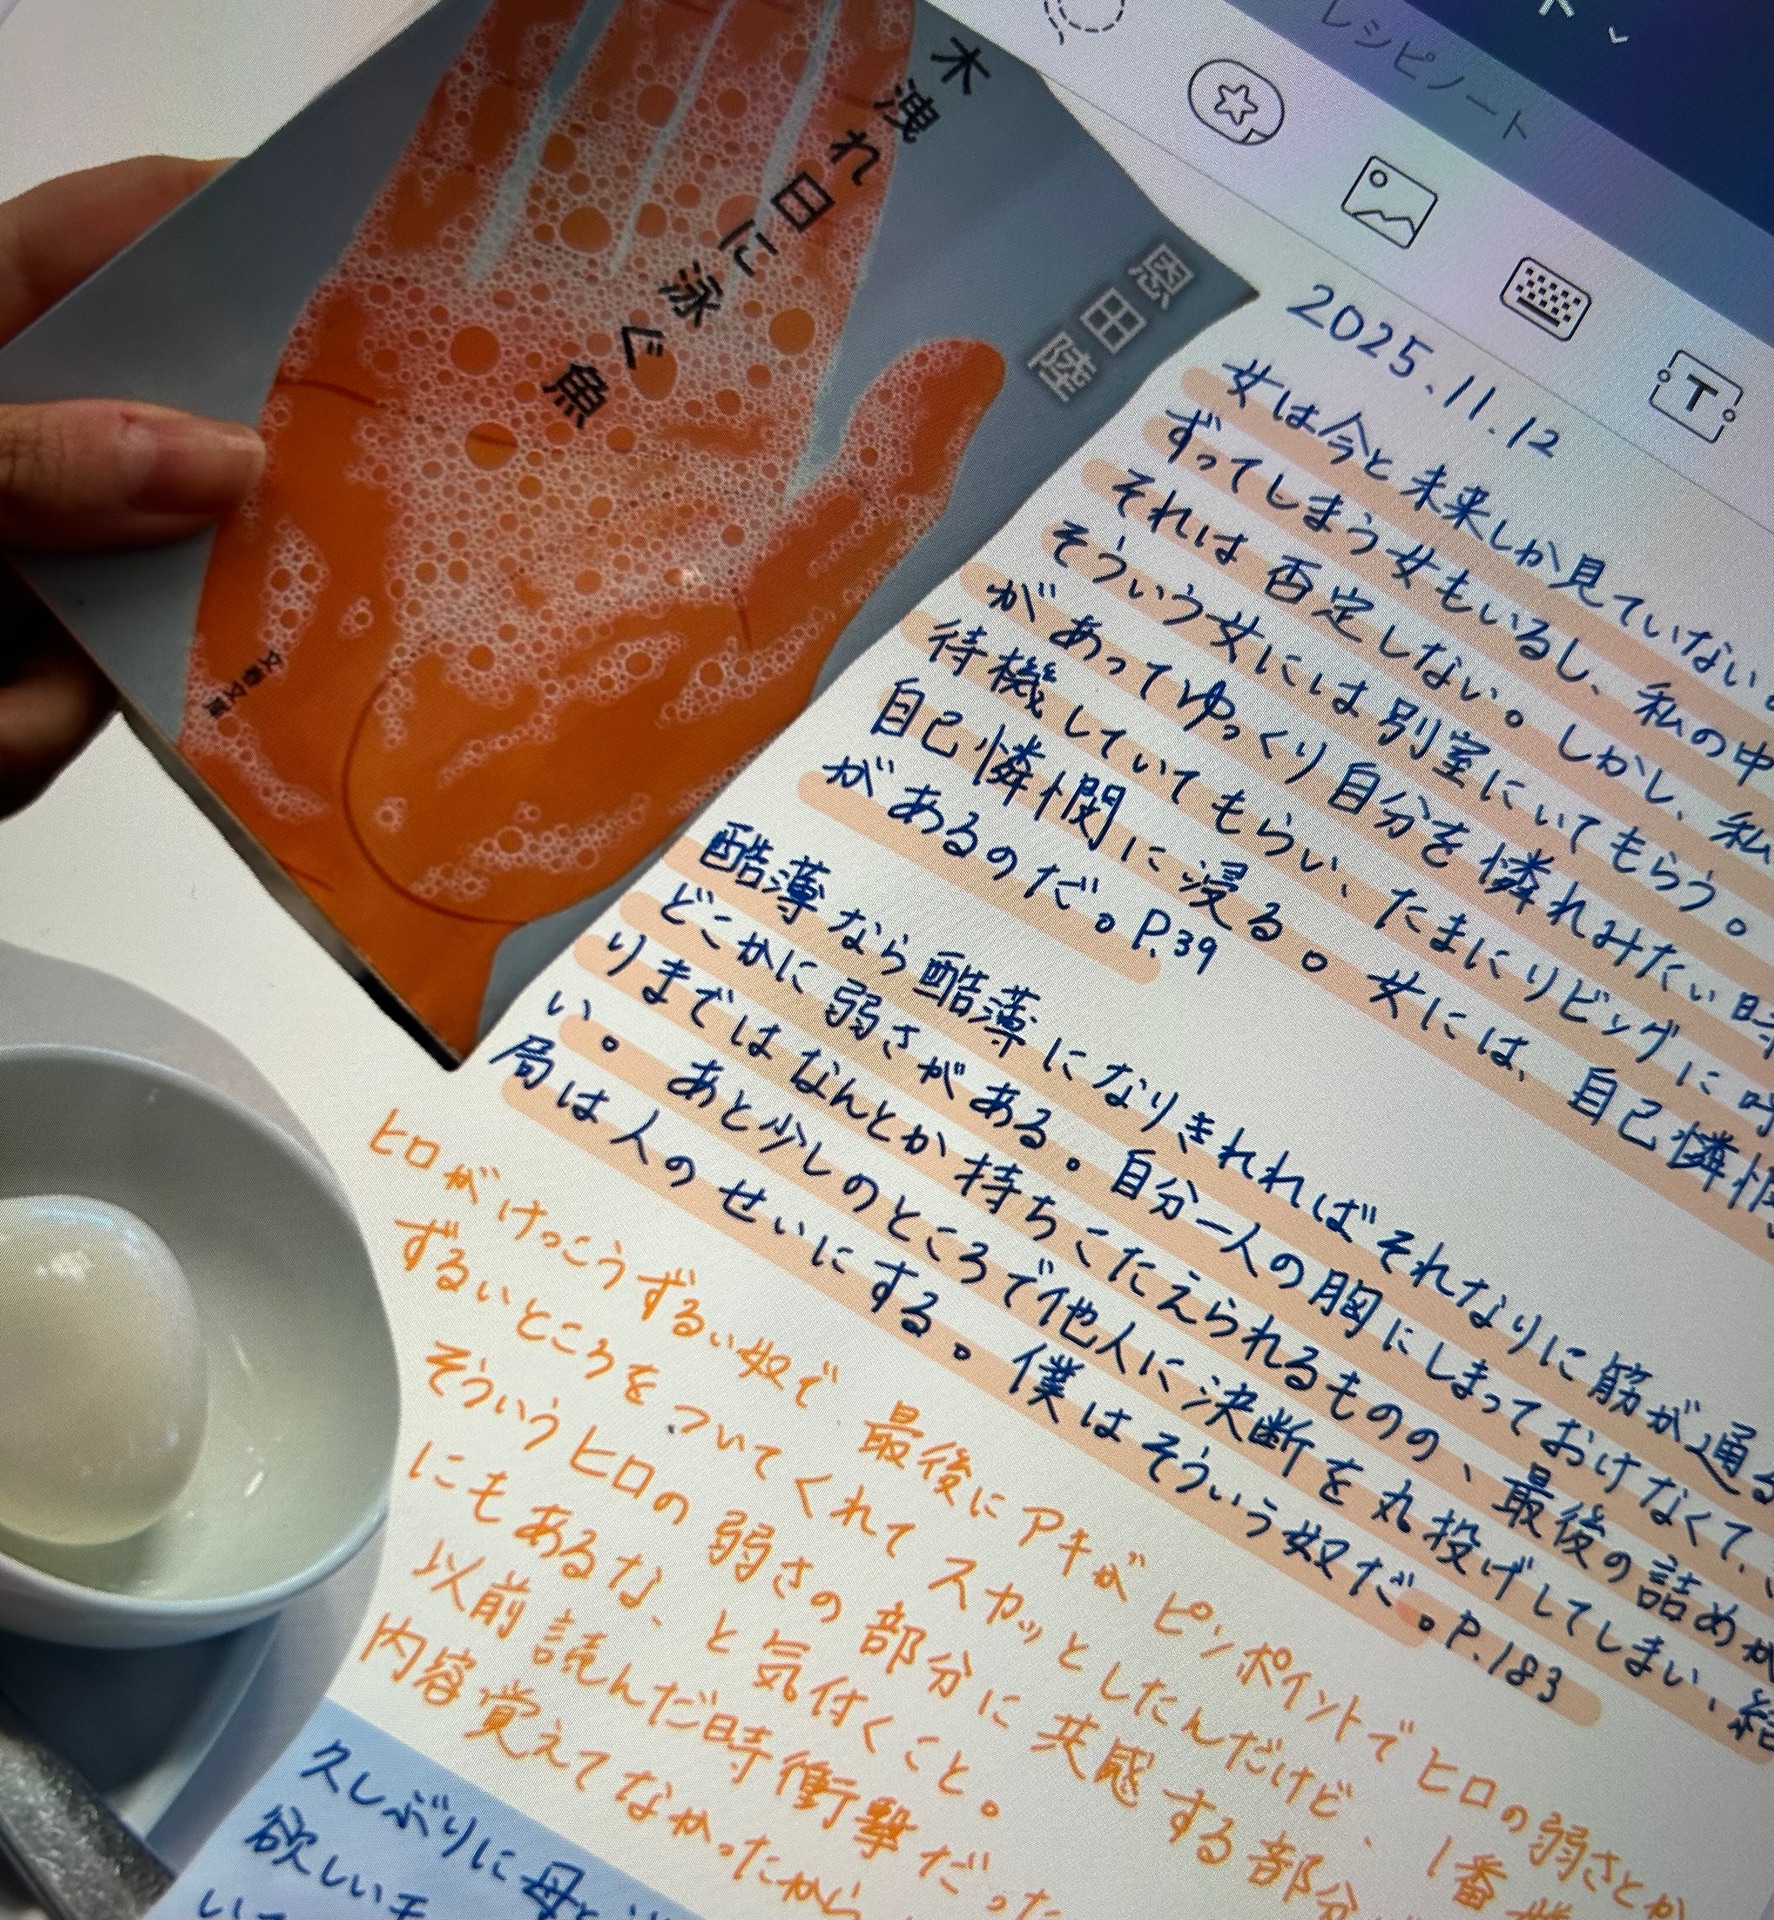 レシピノート
木洩れ日に泳ぐ魚
恩田陸
文春文庫
2025.11.12
女は今と未来しか見ていない。
ずってしまう女もいるし、私の中
それは否定しない。しかし、私
そういう女には別室にいてもらう。
があってゆっくり自分を憐れみたい時
待機していてもらい、たまにリビングに呼
自己憐憫に浸る。女には、自己憐憫
があるのだ。P.39
酷薄なら酷薄になりきれればそれなりに筋が通る
どこかに弱さがある。自分一人の胸にしまっておけなくて、
りまではなんとか持ちこたえられるものの、最後の詰めが
い。あと少しのところで他人に決断を丸投げしてしまい、結
局は人のせいにする。僕はそういう奴だ。P.183
ヒロがけっこうずるい奴で、最後にアキがピンポイントでヒロの弱さとか
ずるいところをついてくれてスカッとしたんだけど、1番
そういうヒロの弱さの部分に共感する部分
にもあるな、と気付くこと。
以前読んだ時衝撃だった
内容覚えてなかったから
久しぶりに母と
欲しい
いて